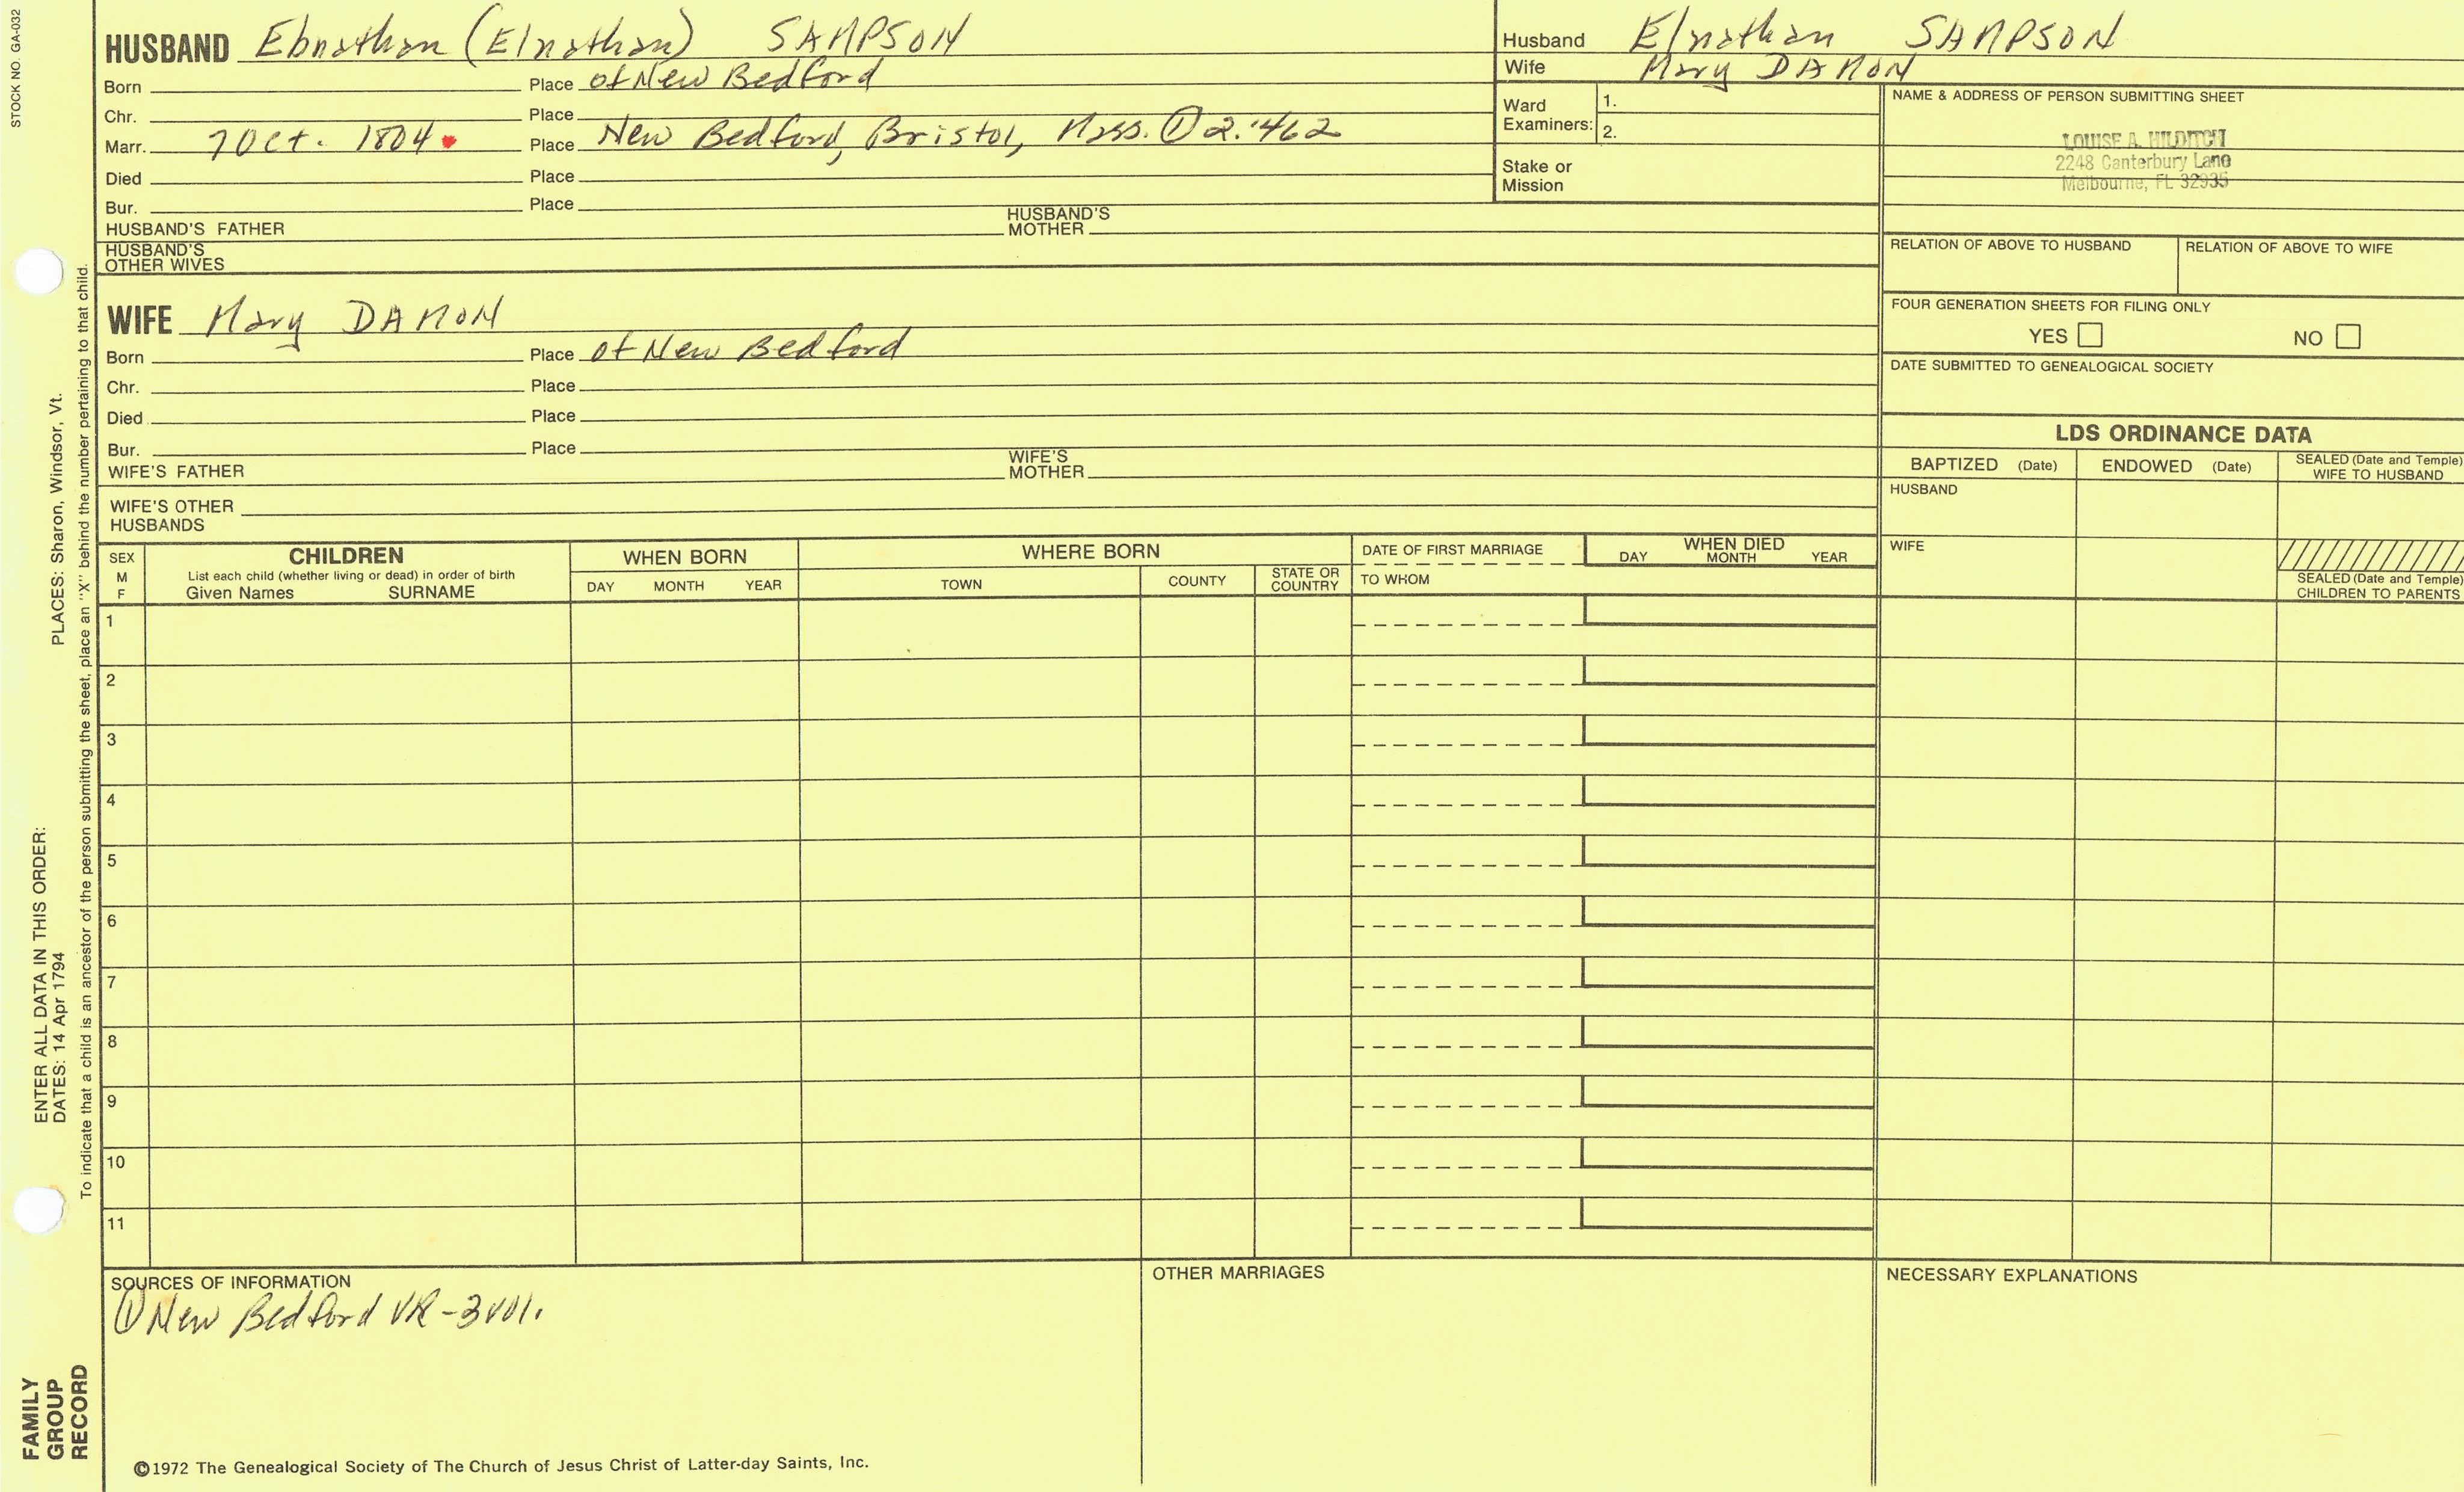 STOCK NO. GA-032
HUSBAND Ebnathan (Elnathan) SAMPSON
Born Place of New Bedford
Chr. Place
Marr. 7 Oct. 1804 Place New Bedford, Bristol, Mass. ① 2:462
Died Place
Bur. Place
HUSBAND'S FATHER HUSBAND'S MOTHER
HUSBAND'S OTHER WIVES
WIFE Mary DAMON
Born Place of New Bedford
Chr. Place
Died Place
Bur. Place
WIFE'S FATHER WIFE'S MOTHER
WIFE'S OTHER HUSBANDS
Husband Elnathan SAMPSON
Wife Mary DAMON
Ward Examiners: 1. 2.
Stake or Mission
NAME & ADDRESS OF PERSON SUBMITTING SHEET
LOUISE A. HILDITCH
2248 Canterbury Lane
Melbourne, FL 32935
RELATION OF ABOVE TO HUSBAND RELATION OF ABOVE TO WIFE
FOUR GENERATION SHEETS FOR FILING ONLY
YES NO
DATE SUBMITTED TO GENEALOGICAL SOCIETY
LDS ORDINANCE DATA
BAPTIZED (Date) ENDOWED (Date) SEALED (Date and Temple) WIFE TO HUSBAND
HUSBAND
WIFE
SEALED (Date and Temple) CHILDREN TO PARENTS
SEX M F
CHILDREN
List each child (whether living or dead) in order of birth
Given Names SURNAME
WHEN BORN
DAY MONTH YEAR
WHERE BORN
TOWN COUNTY STATE OR COUNTRY
DATE OF FIRST MARRIAGE
TO WHOM
WHEN DIED
DAY MONTH YEAR
1
2
3
4
5
6
7
8
9
10
11
SOURCES OF INFORMATION
① New Bedford VR-3 vol.
OTHER MARRIAGES
NECESSARY EXPLANATIONS
©1972 The Genealogical Society of The Church of Jesus Christ of Latter-day Saints, Inc.
FAMILY GROUP RECORD
ENTER ALL DATA IN THIS ORDER:
DATES: 14 Apr 1794 PLACES: Sharon, Windsor, Vt.
To indicate that a child is an ancestor of the person submitting the sheet, place an "X" behind the number pertaining to that child.